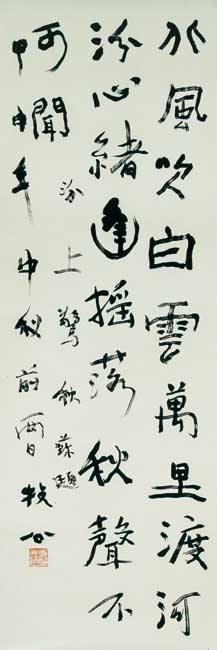 北風吹白雲萬里渡河
汾心緒逢搖落秋聲不
可聞 汾上驚秋 蘇頲
甲申年中秋前兩日